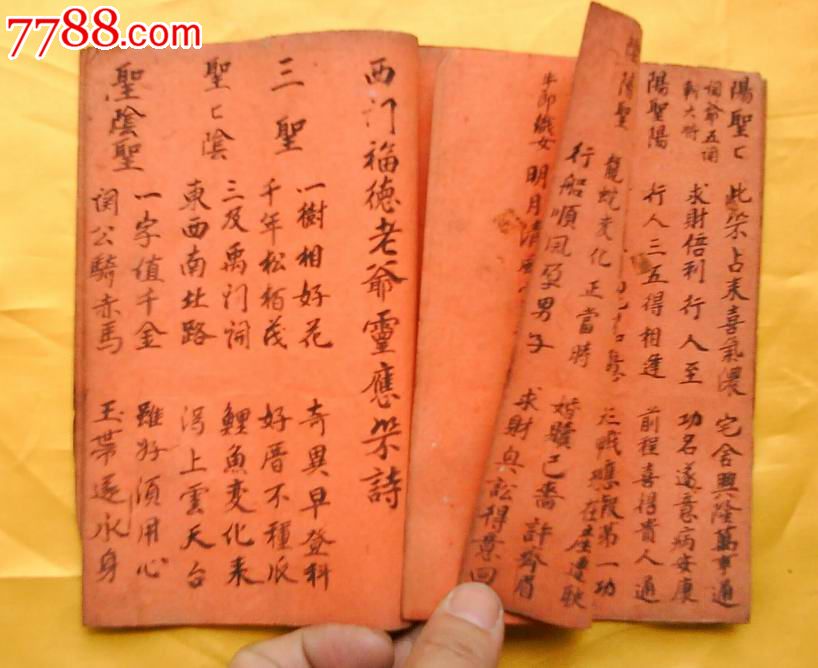 7788.com
陽聖匕 此筊占来喜氣濃 宅舍興隆萬事通
関爺五関 求財倍利行人至 功名遂意病安康
斬大将
陽聖陽 行人三五得相逢 前程喜得貴人通
第一功
陽聖 龍蛇變化正當時
行船順風孕男子 求財與訟得 回
牛郎織女 明月清風
西门福德老爺靈應筊詩
三聖 一樹相好花 奇異早登科
千年松栢茂 好厝不種
聖匕陰 三及禹门 鯉魚變化来
東西南北路 上雲天台
聖陰聖 一字值千金 雖好須用心
関公騎赤馬 玉帶 身